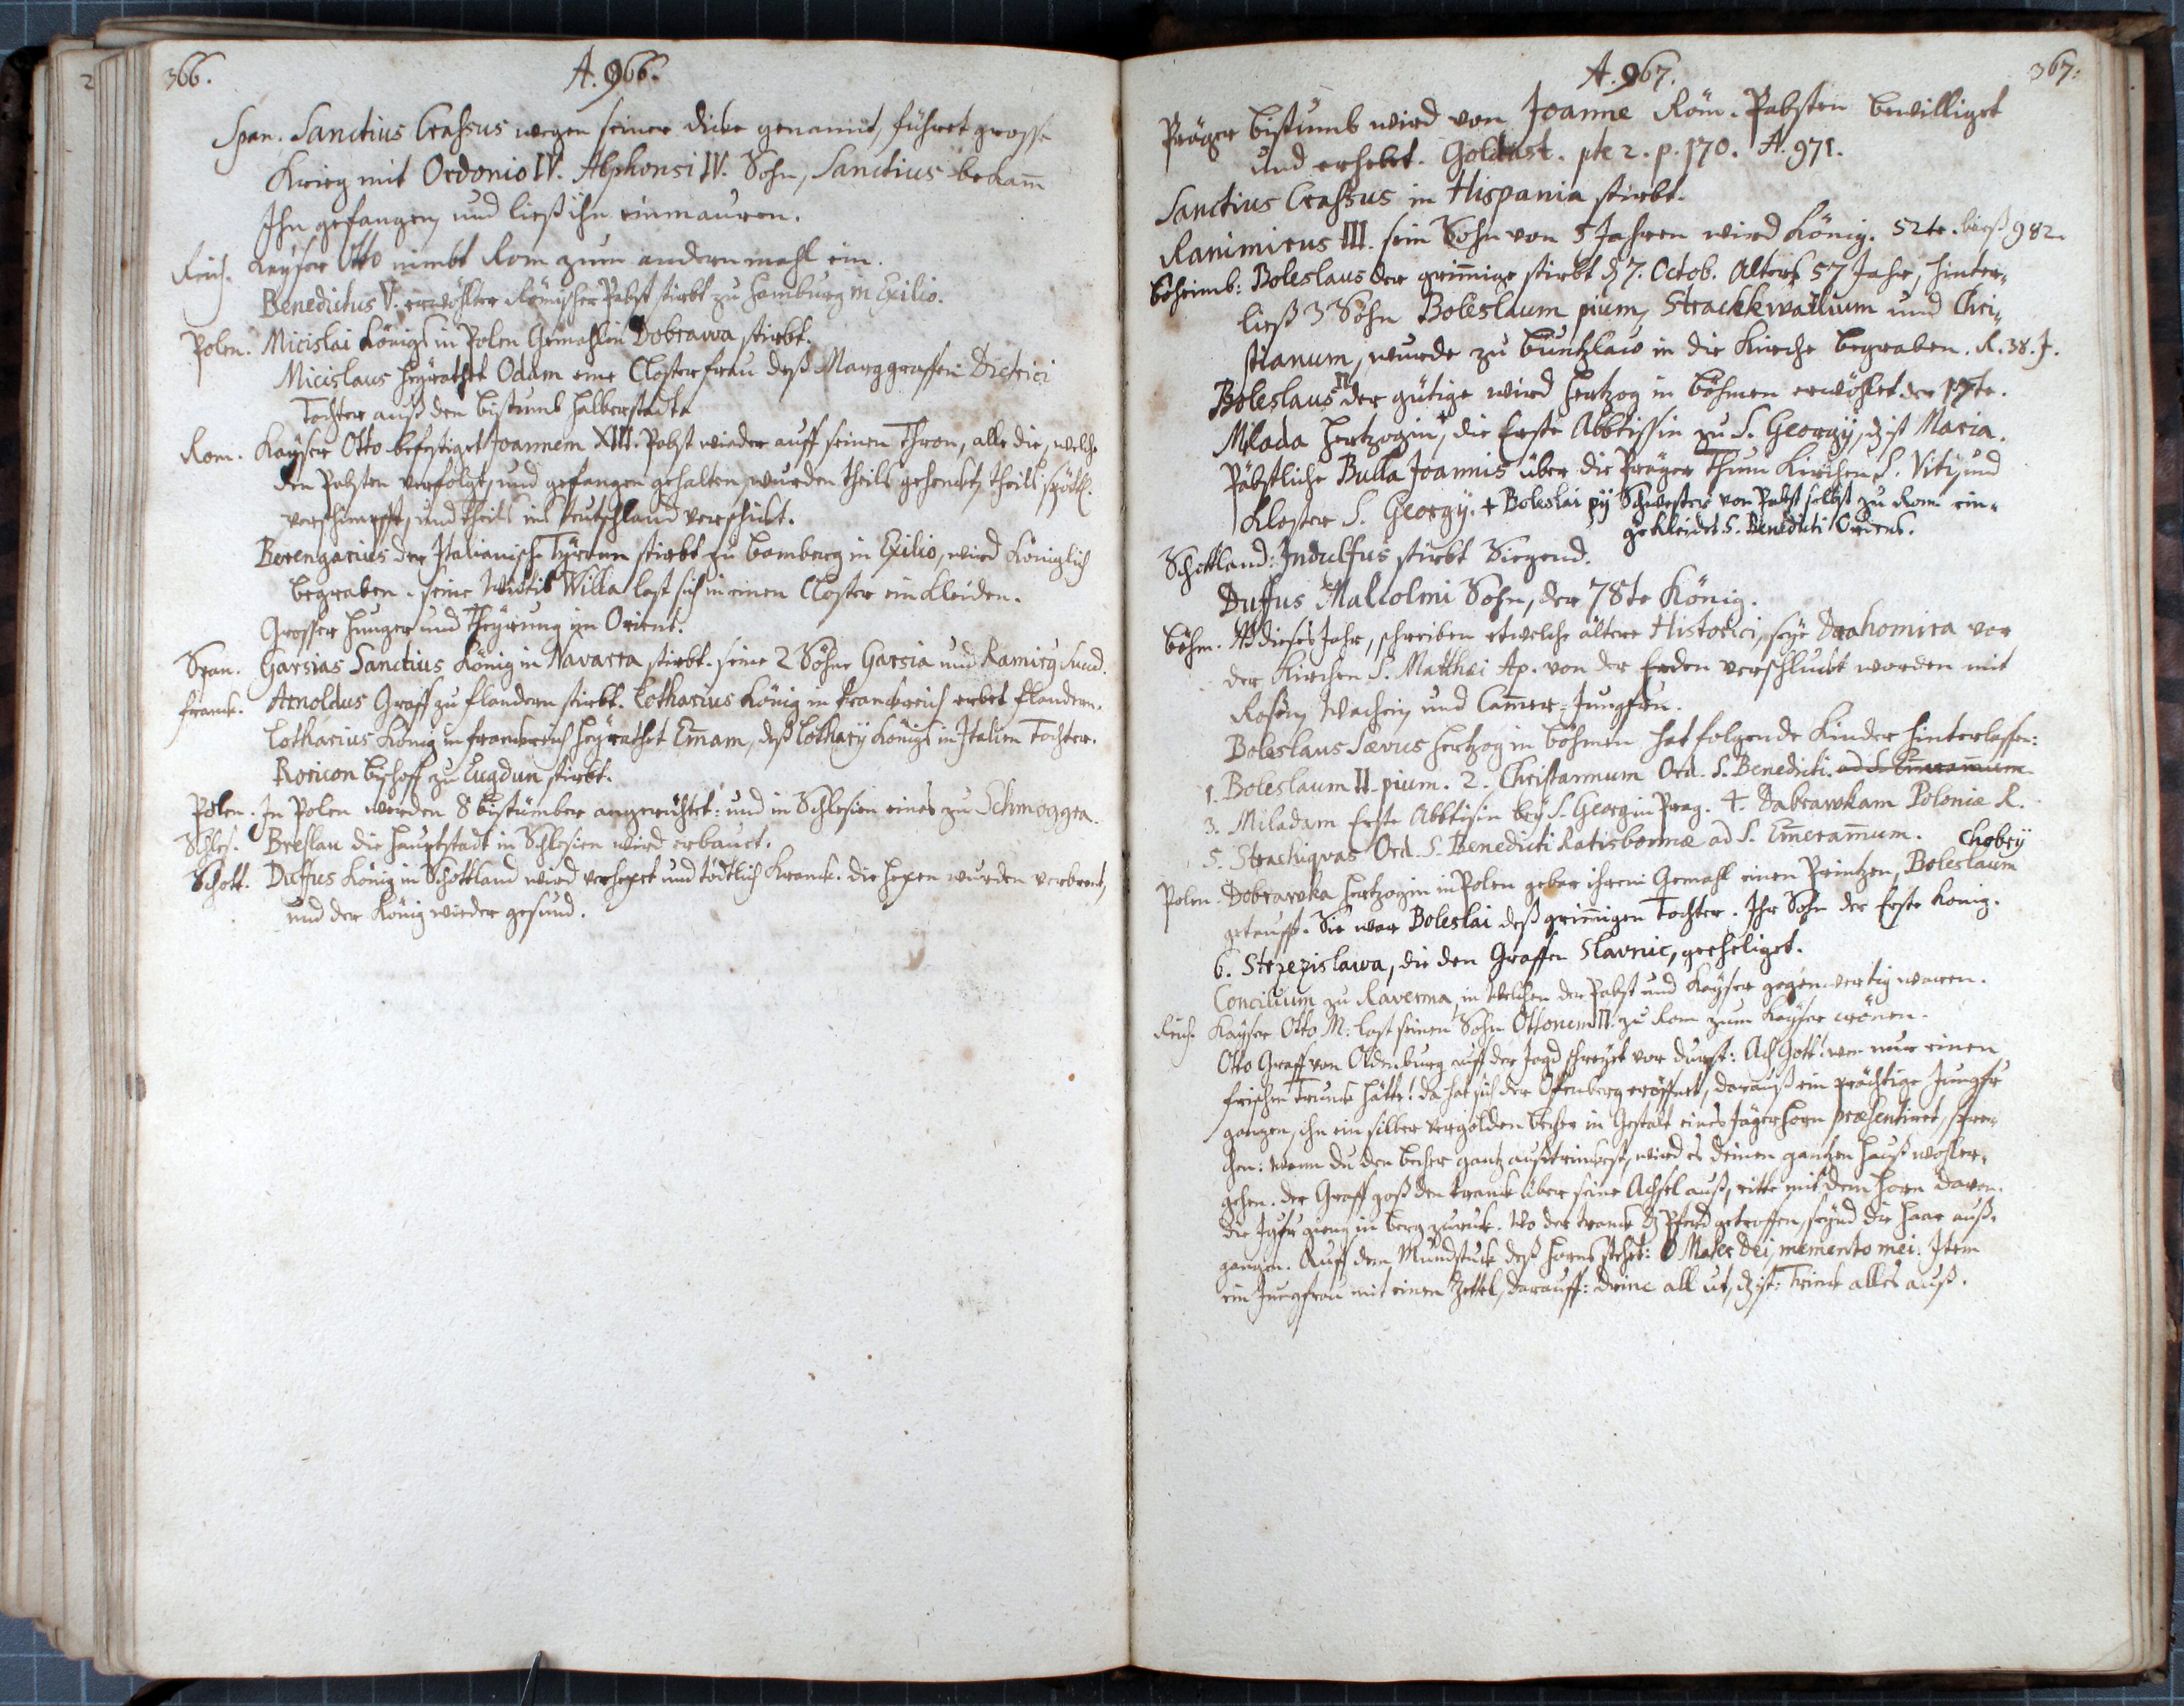 366.
A. 966.
Span. Sanctius Crassus wegen seiner dicke genannt, führet grosse
Krieg mit Ordonio IV. Alphonsi IV. Sohn, Sanctius bekam̅
Ihn gefangen, und ließ ihn einmauren.
Reich. Kaÿser Otto nimbt Rom zum andern mahl ein.
Benedictus V. erwöhlter Römischer Pabst stirbt zu Hamburg in Exilio.
Polen. Micislai Königs in Polen Gemahlin Dobrawa stirbt.
Micislaus heÿrathet Odam eine Closterfrau deß Marggraffen Dietrici
Tochter auß den Bistumb Halberstadt.
Rom. Kaÿser Otto befestiget Joannem XIII. Pabst wieder auff seinen Thron, alle die, welche
den Pabsten verfolgt, und gefangen gehalten, wurden theils gehenckt, theils spöttl.
verschimpfft, und theils ins Teutschland verschickt.
Berengarius der Italianische Tÿrann stirbt zu Bamberg in Exilio, wird Königlich
begraben. seine Wittib Willa last sich in einen Closter einkleiden.
Grosser Hunger und Theÿrung im Orient.
Span. Garsias Sanctius König in Navarra stirbt. seine 2 Söhne Garsia und Ramirÿ Succed.
Franck. Arnoldus Graff zu Flandern stirbt. Lotharius König in Franckreich erbet Flandern.
Lotharius König in Franckreich heÿrathet Em̅am, deß Lotharÿ Königs in Italien Tochter.
Roricon Bischoff zu Lugdun stirbt.
Polen. In Polen werden 8 Bistümber angerichtet: und in Schlesien eines zu Schmoggra.
Schles. Breslau die Hauptstadt in Schlesien wird erbauet.
Schott. Duffus König in Schottland wird verhext und tödtlich kranck. die Hexen wurden verbrent,
und der König wieder gesund.
A. 967.
367.
Präger Bistumb wird von Joanne Röm. Pabsten bewilliget
und erhebt. Goldast. pte 2. p. 170. A. 971.
Sanctius Crassus in Hispania stirbt.
Ranimirus III. sein Sohn von 5 Jahren wird König. 52te. bieß 982.
Böheimb: Boleslaus der grim̅ige stirbt d 7. Octob. Alters 57 Jahr, hinter-
ließ 3 Söhn Boleslaum pium, Strackkwaßium und Chri-
stianum, wurde zu Buntzlaw in die Kirche begraben. R. 38. J.
Boleslaus II der gütige wird Hertzog in Böhmen erwöhlet der 17te.
Milada Hertzogin +, die Erste Abbtissin zu S. Georgÿ, d ist Maria.
Päbstliche Bulla Joannis über die Präger Thum Kirchen S. Viti, und
Kloster S. Georgÿ. + Boleslai pÿ Schwester von Pabst selbst zu Rom ein-
gekleidet S. Benedicti Ordens.
Schottland: Indulfus stirbt Siegend.
Duffus Malcolmi Sohn, der 78te König.
Böhm. Ao dieses Jahr, schreiben etwelche ältere Historici, seÿe Drahomira vor
der Kirchen S. Matthæi Ap. von der Erden verschluckt worden mit
Rossen, Wachen, und Cam̅er-Jungfrn.
Boleslaus Sævus Hertzog in Böhmen hat folgende Kinder hinterlassen:
1. Boleslaum II. pium. 2. Christannum Ord. S. Benedicti. ad S. Em̅eram̅um.
3. Miladam Erste Abbtisin beÿ S. Georg in Prag. 4. Dabrawkam Poloniæ R.
5. Strachiqvas Ord. S. Benedicti Ratisbonnæ ad S. Em̅eram̅um.
Chobrÿ
Polen. Dobrawka Hertzogin in Polen gebar ihrem Gemahl einen Printzen, Boleslaum
getaufft. Sie war Boleslai deß grim̅igen Tochter. Ihr Sohn der Erste König.
6. Strzezislawa, die den Graffen Slavnic, geeheliget.
Concilium zu Ravenna, in welchen der Pabst und Kaÿser gegenwertig waren.
Reich. Kaÿser Otto M. last seinen Sohn Ottonem II. zu Rom zum Kaÿser crönen.
Otto Graff von Oldenburg auff der Jagd schreÿet vor durst: Ach Gott! wer nur einen
frischen Trunck hätte! da hat sich der Osenberg eröffnet, darauß ein prächtige Jungfr
gangen, ihn ein silber vergolden becher in Gestalt eines Jägerhorn præsentiret, spre-
chen: wann du den becher gantz außtrinckest, wird es deinen gantzen Hauß wohler-
gehen. der Graff goß den tranck über seine Achsel auß, ritte mit dem Horn davon.
die Jgfr gieng in berg zuruck. Wo der tranck d Pferd getroffen, seÿnd die Haar auß-
gangen. Auff dem Mundstuck deß Horns stehet: O Mater Dei, memento mei. Item
ein Jungfrau mit einen Zettel, darauff: Drinc all ut, d ist: Trinck alles auß.